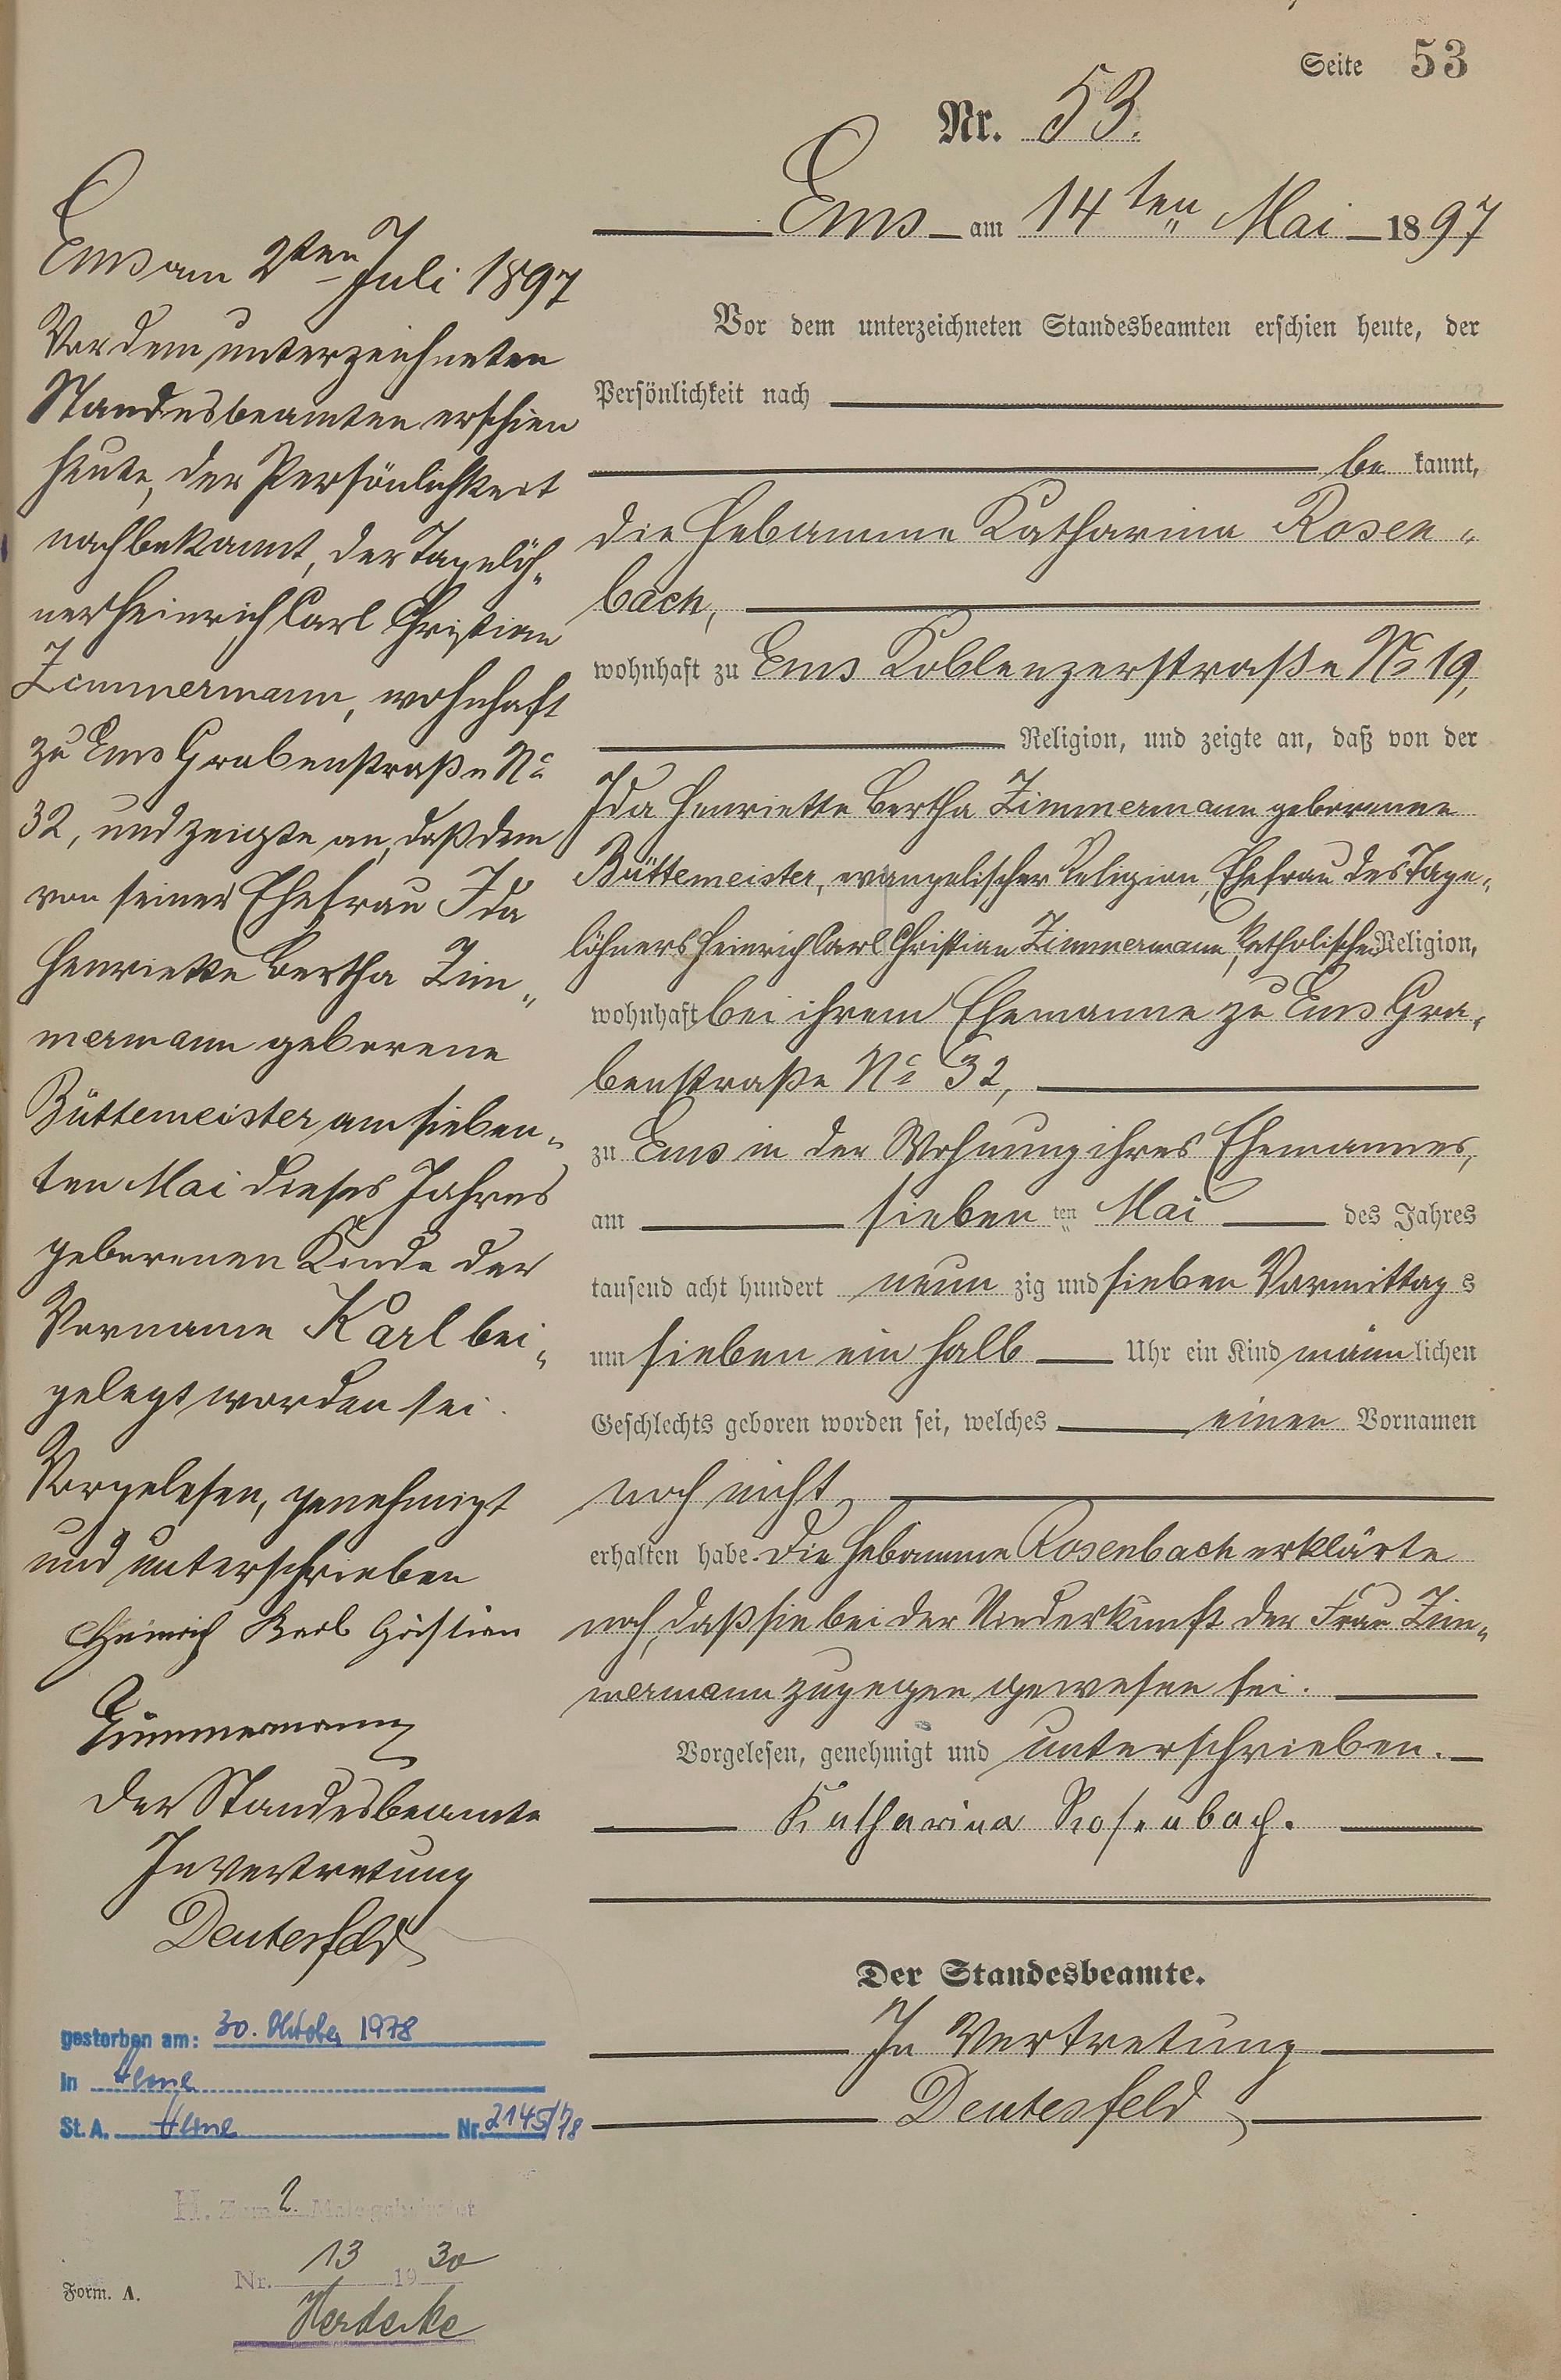 Seite 53
Nr. 53.
Ems am 14ten Mai 1897
Vor dem unterzeichneten Standesbeamten erschien heute, der
Persönlichkeit nach
be kannt,
die Hebamme Katharina Rosen„
bach,
wohnhaft zu Ems Koblenzerstraße No 19,
Religion, und zeigte an, daß von der
Ida Henriette Bertha Zimmermann geborenen
Büttemeister, evangelischer Religion, Ehefrau des Tage„
löhners Heinrich Carl Christian Zimmermann, katholischer Religion,
wohnhaft bei ihrem Ehemanne zu Ems Gra„
benstraße No 32,
zu Ems in der Wohnung ihres Ehemannes,
am sieben ten Mai des Jahres
tausend acht hundert neun zig und sieben Vormittag s
um sieben ein halb Uhr ein Kind männ lichen
Geschlechts geboren worden sei, welches einen Vornamen
noch nicht
erhalten habe. Die Hebamme Rosenbach erklärte
noch, daß sie bei der Niederkunft der Frau Zim„
mermann zugegen gewesen sei.
Vorgelesen, genehmigt und unterschrieben.
Katharina Rosenbach.
Der Standesbeamte.
In Vertretung
Deutesfeld
Ems am 2ten Juli 1897
Vor dem unterzeichneten
Standesbeamten erschien
heute, der Persönlichkeit
nach bekannt, der Tagelöh„
ner Heinrich Carl Christian
Zimmermann, wohnhaft
zu Ems Grabenstraße No
32, und zeigte an, daß dem
von seiner Ehefrau Ida
Henriette Bertha Zim„
mermann geborene
Büttemeister am sieben„
ten Mai dieses Jahres
geborenen Kinde der
Vorname Karl bei„
gelegt worden sei.
Vorgelesen, genehmigt
und unterschrieben
Heinrich Karl Christian
Zimmermann
Der Standesbeamte
In Vertretung
Deutesfeld
gestorben am: 30. Oktober 1978
in Herne
St. A. Herne Nr. 2145/78
H. Zum 2. Male geheiratet
Nr. 13 19 30
Herdecke
Form. A.